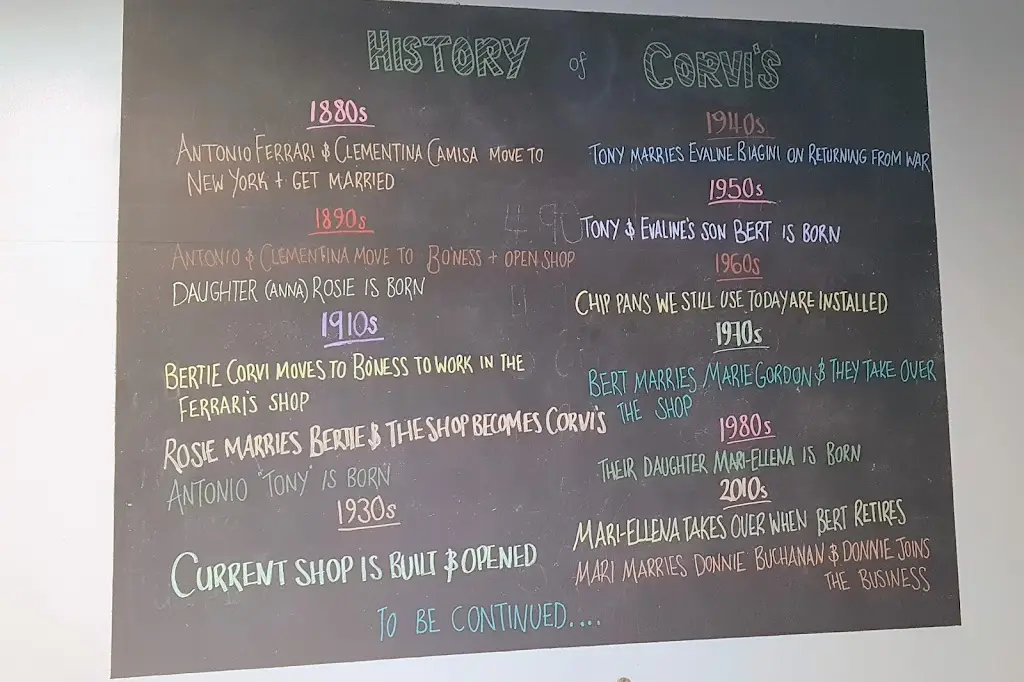 HISTORY of CORVI'S
1880s
ANTONIO FERRARI & CLEMENTINA CAMISA MOVE TO
NEW YORK + GET MARRIED
1890s
ANTONIO & CLEMENTINA MOVE TO BO'NESS + OPEN SHOP
DAUGHTER (ANNA) ROSIE IS BORN
1910s
BERTIE CORVI MOVES TO BO'NESS TO WORK IN THE
FERRARI'S SHOP
ROSIE MARRIES BERTIE & THE SHOP BECOMES CORVI'S
ANTONIO "TONY" IS BORN
1930s
CURRENT SHOP IS BUILT & OPENED
1940s
TONY MARRIES EVALINE BIAGINI ON RETURNING FROM WAR
1950s
TONY & EVALINE'S SON BERT IS BORN
1960s
CHIP PANS WE STILL USE TODAY ARE INSTALLED
1970s
BERT MARRIES MARIE GORDON & THEY TAKE OVER
THE SHOP
1980s
THEIR DAUGHTER MARI-ELLENA IS BORN
2010s
MARI-ELLENA TAKES OVER WHEN BERT RETIRES
MARI MARRIES DONNIE BUCHANAN & DONNIE JOINS
THE BUSINESS
TO BE CONTINUED....
4.90